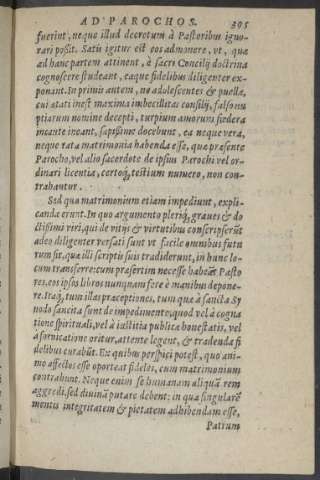 AD PAROCHOS. 395
fuerint, neque illud decretum à Pastoribus igno-
rari possit. Satis igitur est eos admonere, vt, quæ
ad hanc partem attinent, à sacri Concilij doctrina
cognoscere studeant, eaque fidelibus diligenter ex-
ponant. In primis autem, ne adolescentes & puellæ,
cui ætati inest maxima imbecillitas consilij, falso nu
ptiarum nomine decepti, turpium amorum fœdera
incaute ineant, sæpissime docebunt, ea neque vera,
neque rata matrimonia habenda esse, quæ præsente
Parocho, vel alio sacerdote de ipsius Parochi vel or-
dinari licentia, certoq́ testium numero, non con-
trahantur.
Sed quæ matrimonium etiam impediunt, expli-
canda erunt. In quo argumento pleriq́ graues & do
ctissimi viri, qui de vitijs & virtutibus conscripserũt
adeo diligenter versati sunt vt facile omnibus futu
rum sit, quæ illi scriptis suis tradiderunt, in hunc lo-
cum transferre: cum præsertim necesse habeãt Pasto
res, eos ipsos libros nunquam fere è manibus depone-
re. Itaq́, tum illas præceptiones, tum quæ à sancta Sy
nodo sancita sunt de impedimento, quod vel à cogna
tione spirituali, vel à iustitia publicæ honestatis, vel
à fornicatione oritur, attente legent, & tradenda fi
delibus curabũt. Ex quibus perspici potest, quo ani-
mo affectos esse oporteat fideles, cum matrimonium
contrahunt. Neque enim se humanam aliquã rem
aggredi, sed diuinã putare debent: in qua singularẽ
mentis integritatem & pietatem adhibendam esse,
Patrum